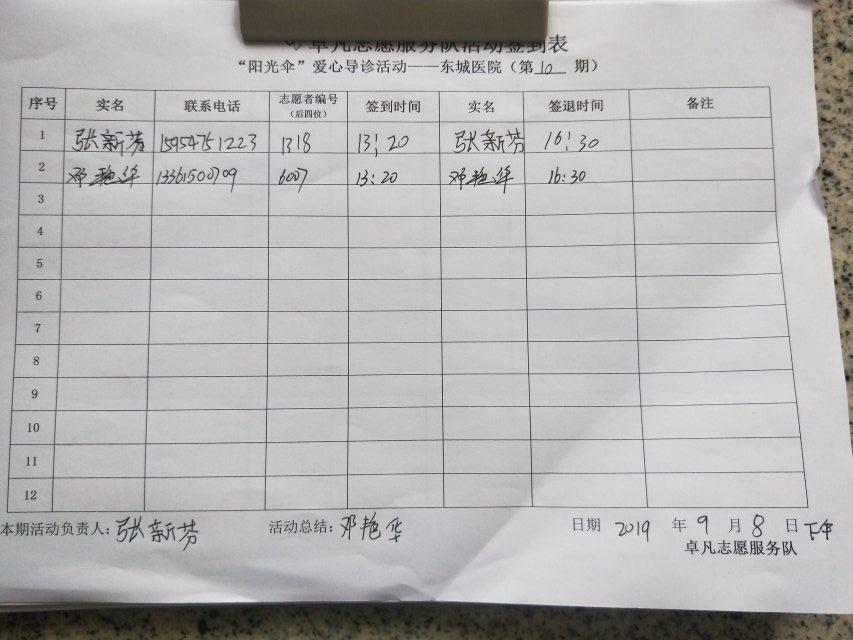 卓凡志愿服务队活动签到表
“阳光伞”爱心导诊活动——东城医院（第10期）
序号 实名 联系电话 志愿者编号（后四位） 签到时间 实名 签退时间 备注
1 张新芳 15954751223 1318 13:20 张新芳 16:30
2 邓艳华 13361500709 6007 13:20 邓艳华 16:30
3
4
5
6
7
8
9
10
11
12
本期活动负责人：张新芳 活动总结：邓艳华 日期 2019 年 9 月 8 日 下午
卓凡志愿服务队